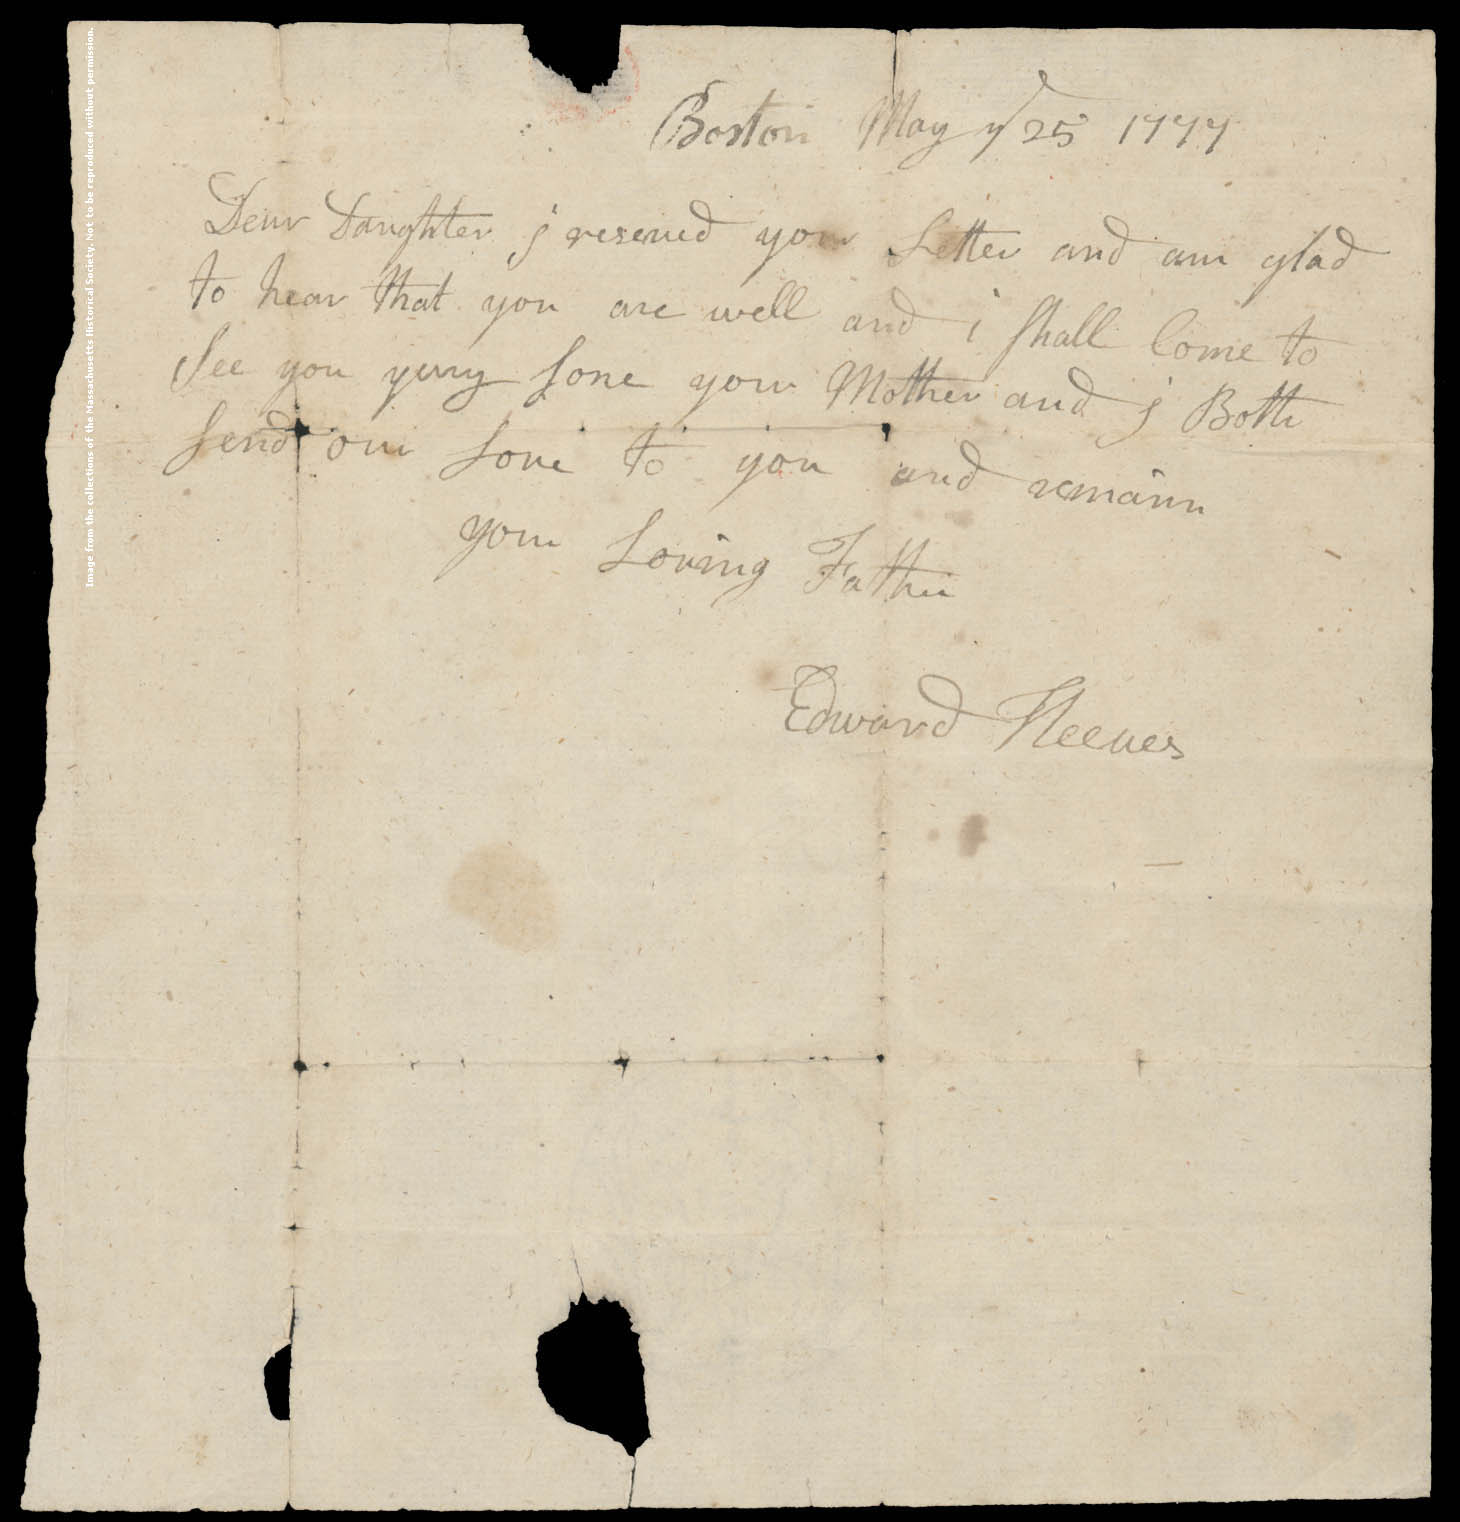 Boston May ye 25 1777
Dear Daughter j reseued your Letter and am glad
to hear that you are well and i shall Come to
See you yerry sone your Mother and j Both
send our Love to you and remainn
your Loving Father
Edward Reeves
Image from the collections of the Massachusetts Historical Society. Not to be reproduced without permission.